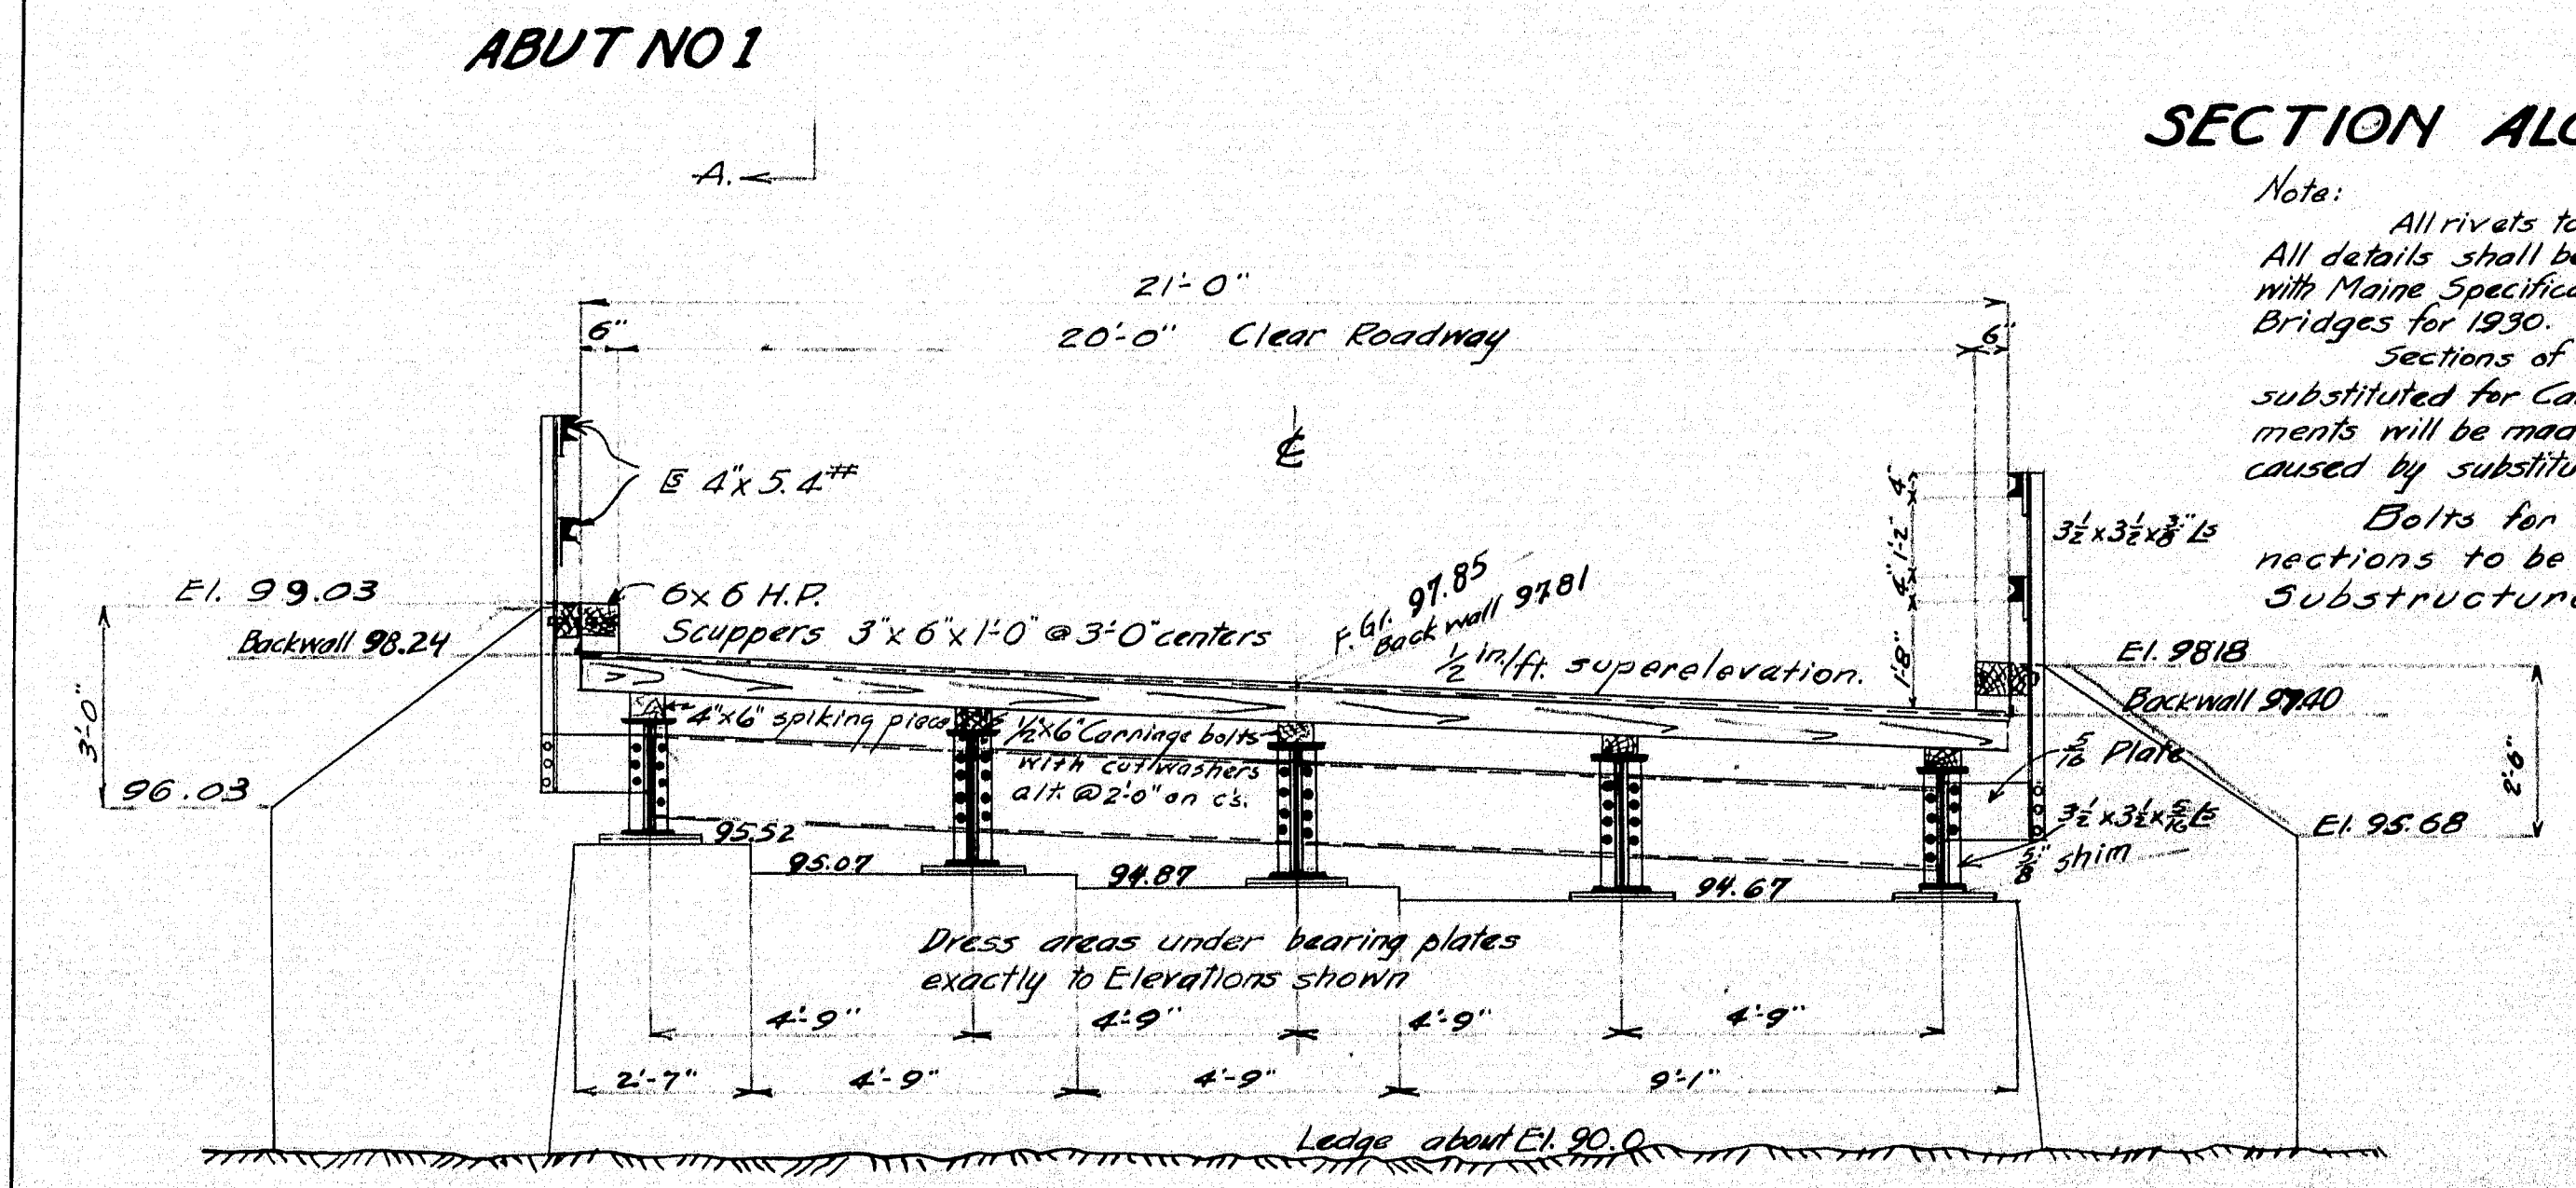 ABUT NO 1
A.
SECTION ALO
Note:
All rivets to
All details shall be
with Maine Specifica
Bridges for 1930.
Sections of
substituted for Ca
ments will be mad
caused by substitu
Bolts for
nections to be
Substructure
21'-0"
6"
20'-0" Clear Roadway
6"
℄
[s 4"x 5.4#
4"
1'-2"
4"
1'-8"
3½ x 3½ x ⅜" Ls
El. 99.03
Backwall 98.24
6x6 H.P.
Scuppers 3"x 6"x 1'-0" @ 3'-0" centers
F. Gr. 97.85
Backwall 97.81
½ in./ft. superelevation.
El. 98.18
Backwall 97.40
3'-0"
96.03
4"x6" spiking piece
½"x6" Carriage bolts
with cut washers
alt. @ 2'-0" on c's.
5/16 Plate
2'-6"
3½ x 3½ x 5/16 Ls
El. 95.68
⅝" shim
95.52
95.07
94.87
94.67
Dress areas under bearing plates
exactly to Elevations shown
4'-9"
4'-9"
4'-9"
4'-9"
2'-7"
4'-9"
4'-9"
9'-1"
Ledge about El. 90.0